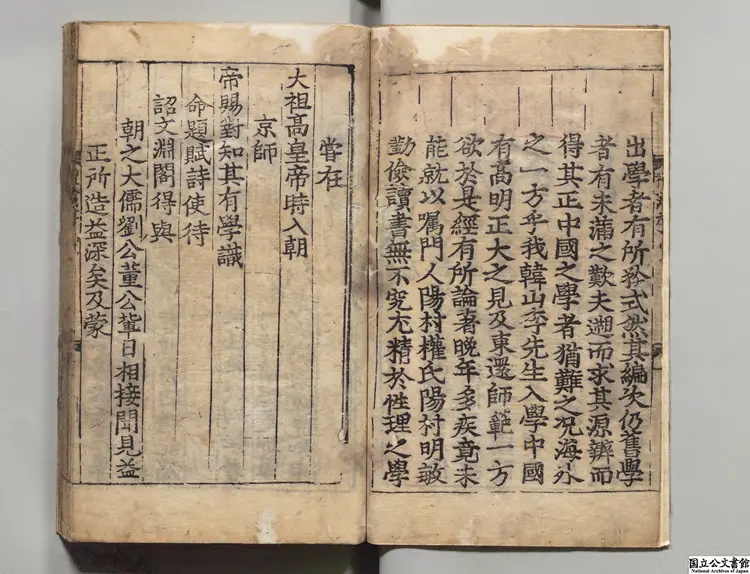 出學者有所矜式然其編次仍舊學
者有未滿之歎夫遡而求其源辨而
得其正中國之學者猶難之况海外
之一方乎我韓山李先生入學中國
有高明正大之見及東還師範一方
欲於是經有所論著晚年多疾竟未
能就以囑門人陽村權氏陽村明敏
勤儉讀書無不究尤精於性理之學
嘗在
大祖高皇帝時入朝
京師
帝賜對知其有學識
命題賦詩使待
詔文淵閣得與
朝之大儒劉公董公輩日相接聞見益
正所造益深矣及蒙
国立公文書館
National Archives of Japan